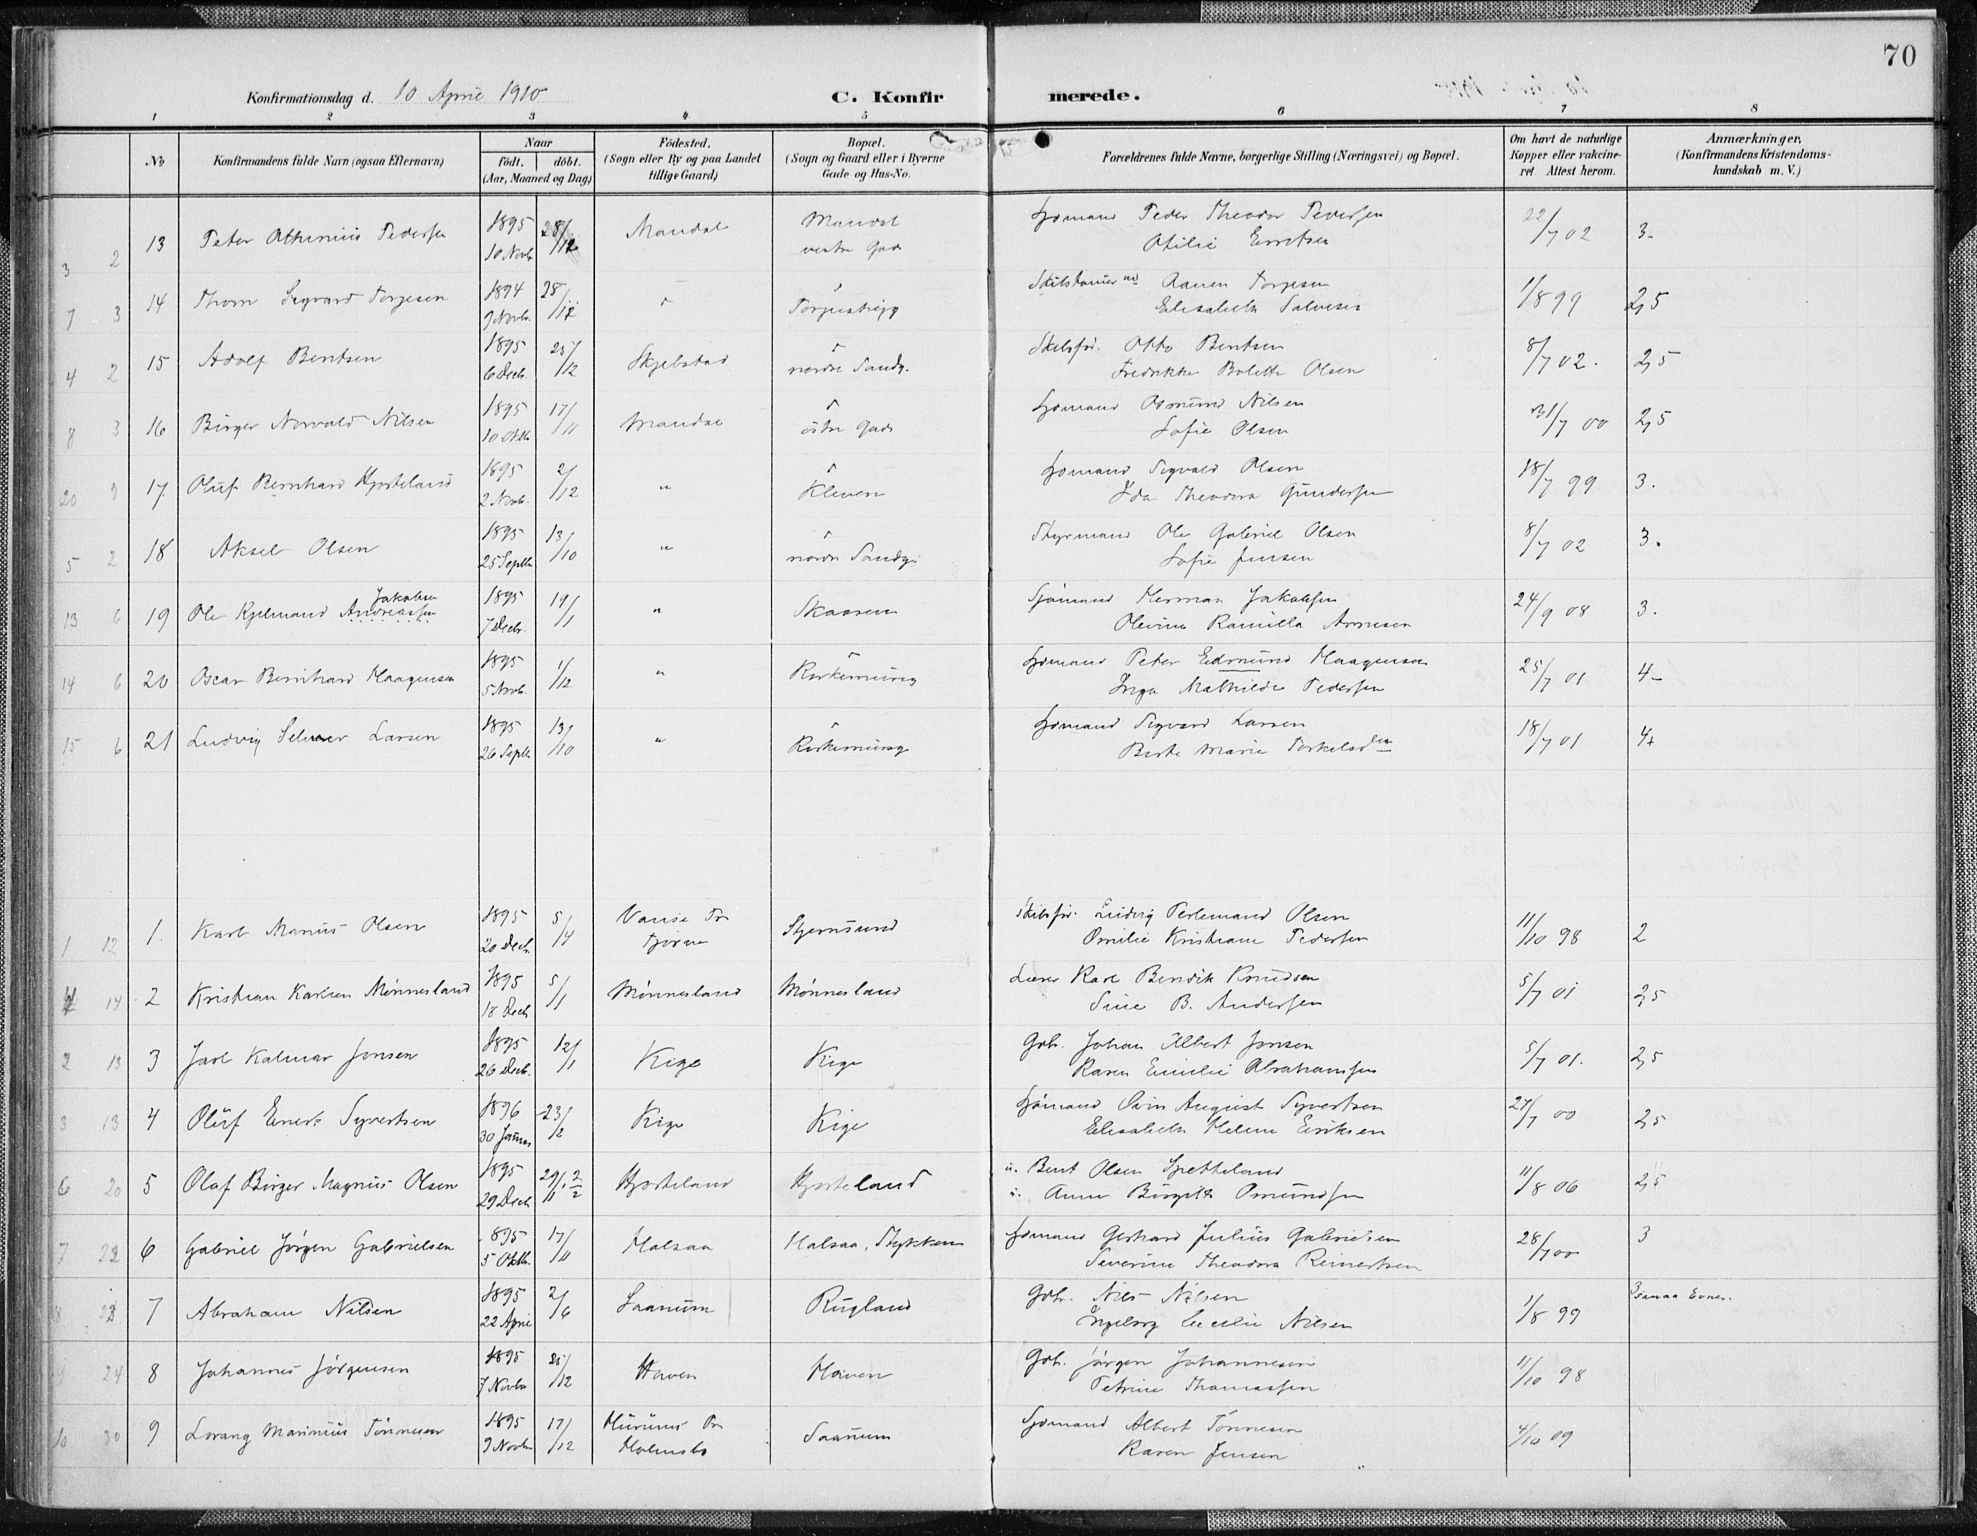 70
Konfirmationsdag d. 10 April 1910 C. Konfirmerede.
1 2 3 4 5 6 7 8
No Konfirmandens fulde Navn (ogsaa Efternavn) Naar Födested. Bopæl. Forældrenes fulde Navne, borgerlige Stilling (Næringsvei) og Bopæl. Om havt de naturlige Anmærkninger,
födt. döbt. (Sogn eller By og paa Landet (Sogn og Gaard eller i Byerne Kopper eller vakcine- (Konfirmandens Kristendoms-
(Aar, Maaned og Dag) tillige Gaard) Gade og Hus-No. ret. Attest herom. kundskab m. V.)
3 2 13 Peter Athinius Pedersen 1895 28/12 Mandal Mandal Sjømand Peder Theodor Pedersen 22/7 02 3-
10 Novbr vestre Gade Otilie Erntsen
7 3 14 Thom Sigvard Torjesen 1894 28/12 " " Aanen Torjesen 1/8 99 2,5
9 Novbr. Elisabeth Salvesen
4 2 15 Adolf Bentsen 1895 25/12 Skjelstad " Skibsfør. Otto Bentsen 8/7 02. 2,5
6 Decb. nordre Sandg. Fredrikke Bolette Olsen
8 3 16 Birger Norvald Nilsen 1895 17/11 Mandal " Sjømand Osmund Nilsen 31/7 00 2,5
10 Oktb. østre Gade Sofie Olsen
20 9 17. Oluf Bernhard Hjorteland 1895 2/12 " " Sjømand Sigvald Olsen 18/7 99 3.
2 Novb. Kleven Ida Theodora Gundersen
5 2 18 Aksel Olsen 1895 13/10 " " Styrmand Ole Gabriel Olsen 8/7 02 3.
25 Septb nordre Sandg. Sofie Jensen
Jakobsen
13 6 19 Ole Kjelmand Andreassen 1895 19/1 " Skaaren Sjømand Herman Jakobsen 24/9 08 3.
7 Decb. Olevine Ramilla Arnesen
14 6 20 Oscar Bernhard Haagensen 1895 1/12 " " Sjømand Peter Edmund Haagensen 25/7 01 4-
5 Novb. Inga Mathilde Pedersen
15 6 21 Ludvig Selmer Larsen 1895 13/10 " " Sjømand Sigvard Larsen 18/7 01 4+
26 Septb Berte Marie Torkelsdtr
1 12 1. Karl Marius Olsen 1895 5/4 Vanse Pr Stjernsund Skibsfør. Ludvig Ferdinand Olsen 11/10 98 2
20 Decb. Omilie Kristiane Pedersen
4 14 2 Kristian Karlsen Mønnesland 1895 5/1 Mønnesland Mønnesland Lærer Karl Bendik Knudsen 5/7 01 2,5
18 Decb Sine B. Andersen
2 13 3 Jarl Kalmar Jensen 1895 12/1 Kige Kige Gbr. Johan Albert Jensen 5/7 01. 2,5
26 Decb. Karen Emilie Abrahamsen
3 13 4 Oluf Enert Syvertsen 1896 23/2 Kige Kige Sjømand Sven August Syvertsen 27/7 00 2,5
30 Januar Elisabeth Helene Eriksen
6 20 5 Olaf Birger Magnus Olsen 1895 Hjorteland Hjorteland u. Bent Olsen 11/8 06 2,5
29 Decb Anne Birgitte Omundsen
7 22 6 Gabriel Jørgen Gabrielsen 1895 17/11 Halsaa Halsaa, Stykken Sjømand Gerhard Julius Gabrielsen 28/7 00 3
5 Oktb. Severine Theodora Reinertsen
8 23 7 Abraham Nilsen 1895 2/6 Saanum Rugland Gbr. Nils Nilsen 1/8 99 smaa Evner.
22 April Ingeborg Cecilie Nilsen
9 24 8 Johannes Jørgensen 1895 25/12 Haven Haven Gbr. Jørgen Johannesen 11/10 98
7 Novbr Petrine Thomassen
10 30 9 Lorang Marinius Tønnesen 1895 17/12 Hurums Pr Saanum Sjømand Albert Tønnesen 4/10 09
9 Novbr Holmsbo Karen Jensen